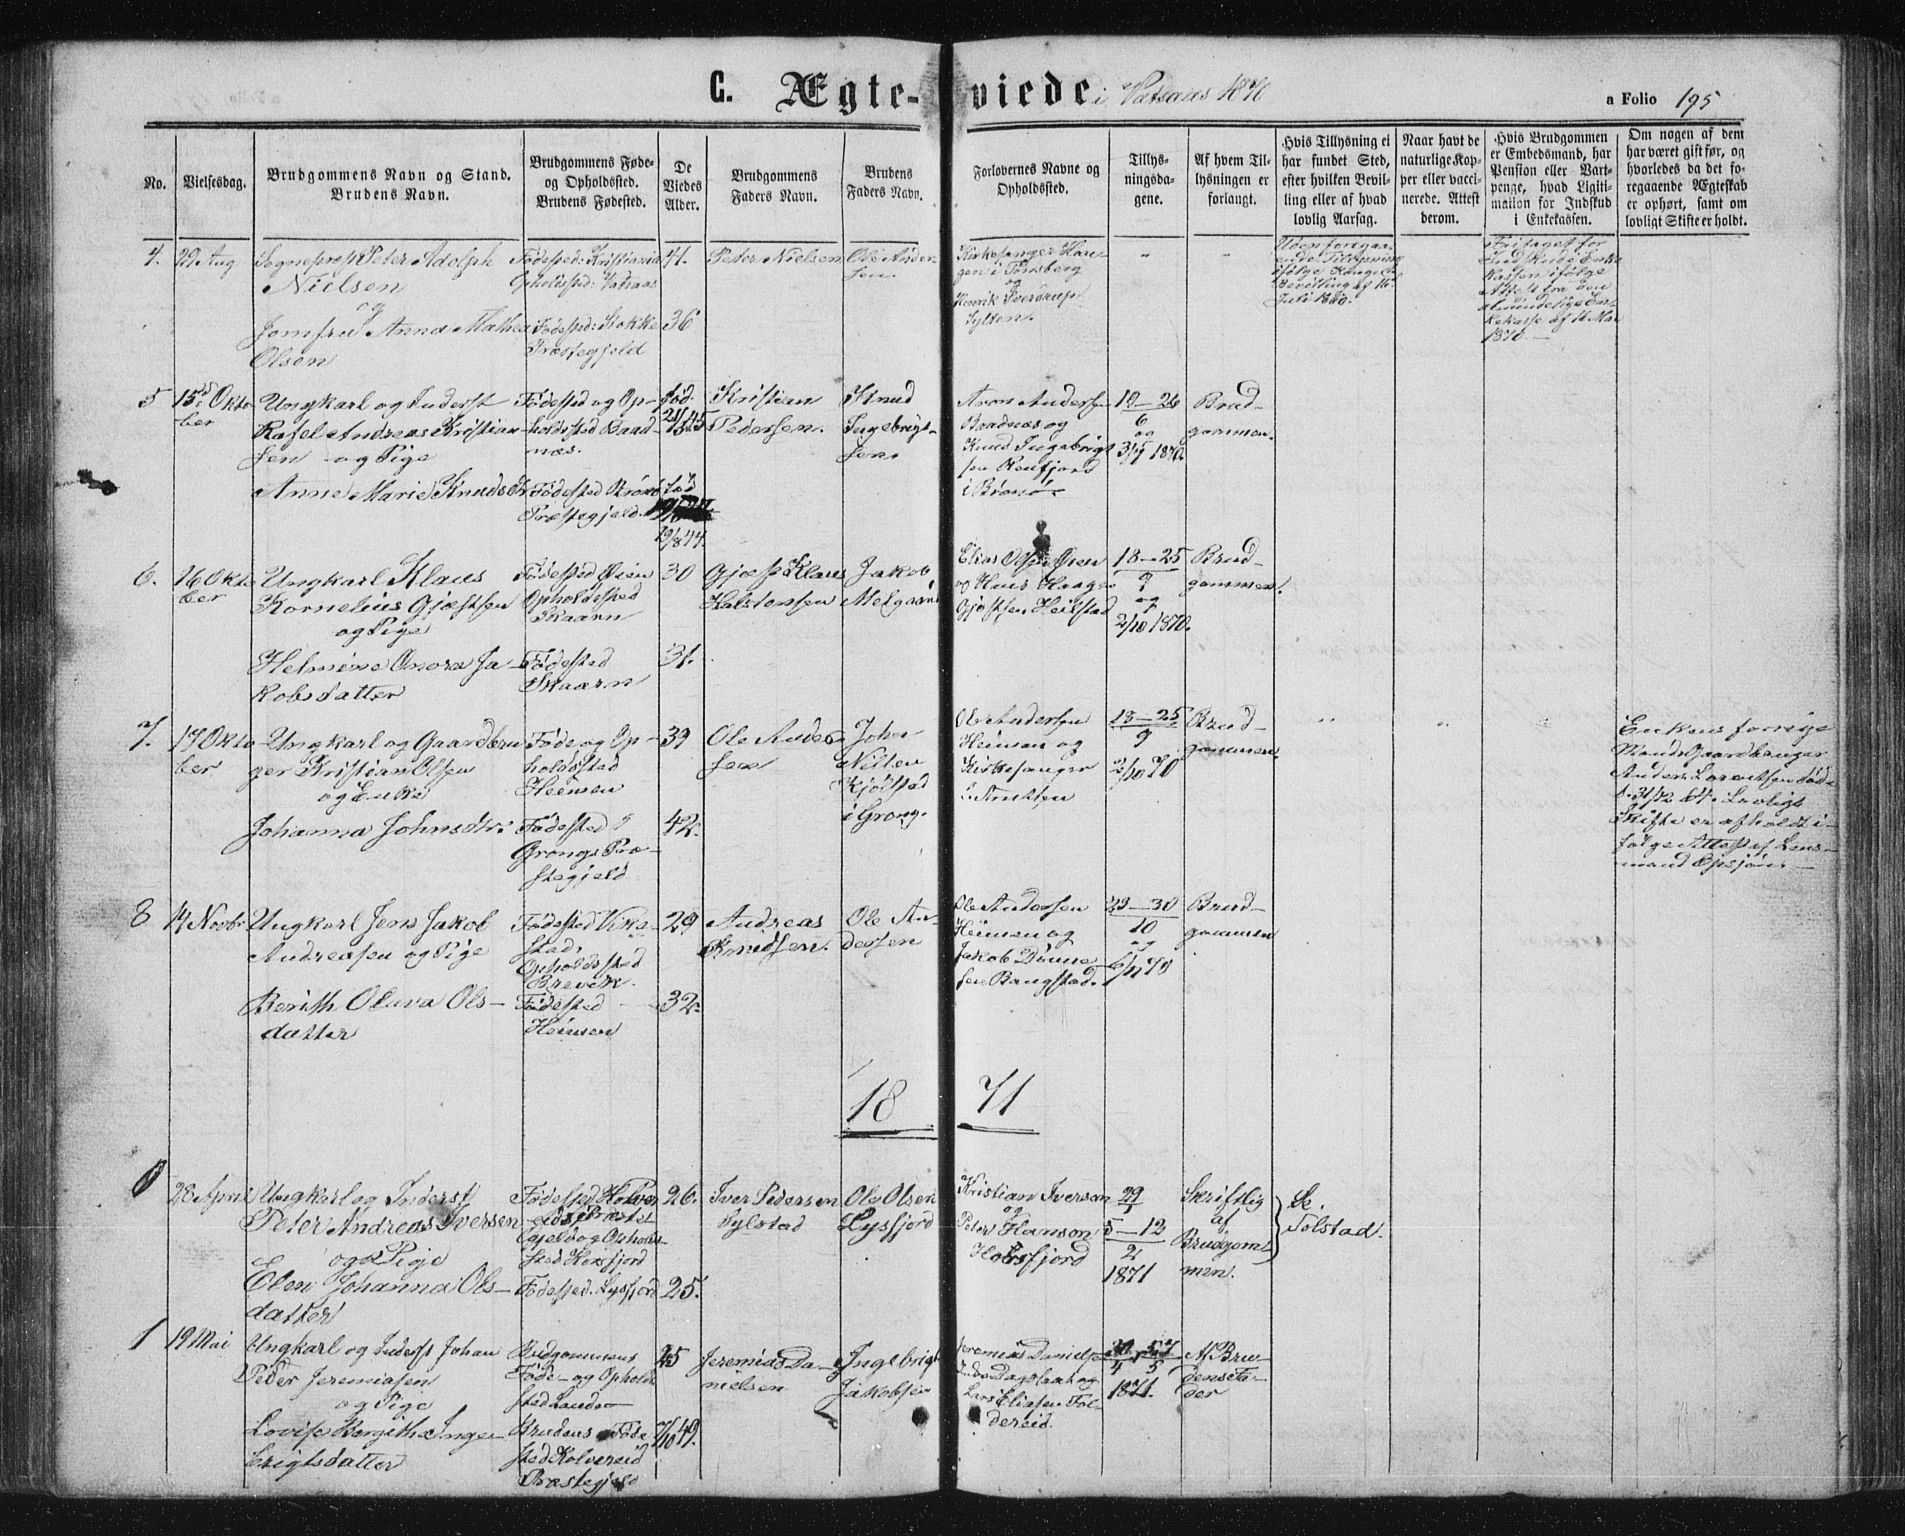 C. Ægte-viede i Vatsaas 1870
a Folio 195
No.
Vielsesdag.
Brudgommens Navn og Stand.
Brudens Navn.
Brudgommens Føde-
og Opholdssted.
Brudens Fødested.
De
Viedes
Alder.
Brudgommens
Faders Navn.
Brudens
Faders Navn.
Forlovernes Navne og
Opholdssted.
Tillys-
ningsda-
gene.
Af hvem Til-
lysningen er
forlangt.
Hvis Tillysning ei
har fundet Sted,
efter hvilken Bevil-
ling eller af hvad
lovlig Aarsag.
Naar havt de
naturlige Kop-
per eller vacci-
nerede. Attest
derom.
Hvis Brudgommen
er Embedsmand, har
Pension eller Vart-
penge, hvad Ligiti-
mation for Indskud
i Enkekassen.
Om nogen af dem
har været gift før, og
hvorledes da det fo-
regaaende Ægteskab
er ophørt, samt om
lovligt Skifte er holdt.
4.
29 Aug
Sognepræst Peter Adolph
Nielsen
og
Jomfru Anna Mathea
Olsen
Fødested: Kristiania
Opholdssted: Vatsaas
Fødested: Stokke
Præstegjeld
41.
36
Peter Nielsen
Ole Ander-
sen
Kirkesanger Hau-
gen i Tønsberg
og
Henrik Sverdrup
Sylten.
" "
Uden foregaa-
ende Tillysning
ifølge Kongel.
Bevilling af 16
Juli 1860.
Fritaget for
Indskud i Enke
kassen ifølge
Attest fra den
almindelige En-
kekasse af 16 Mai
1870. —
5
15de Okto-
ber
Ungkarl og Inderst
Rafel Andreas Kristian-
sen og Pige
Anne Marie Knudsdtr
Fødested og Op-
holdssted Baad-
næs.
Fødested Brønø
Præstegjeld.
fød
21/3 45
fød
19/8 44.
Kristian
Pedersen.
Knud
Ingebrigt-
sen.
Arnt Andersen
Baadnæs og
Knud Ingebrigt-
sen
i Brønø.
19–26
6
og
3/7 1870.
Brud-
gommen.
6.
16 Okto
ber
Ungkarl Klaus
Kornelius Gjæstsen
og Pige
Helmine Onora Ja-
kobsdatter
Fødested Øien
Opholdssted
Skaarn
Fødested
Skaarn
30
31.
Gjæst Klaus
Halstensen
Jakob
Melgaard
Elias Øien
og Hans Haagen
Gjæstsen Heilstad
18–25
9
og
2/10 1870.
Brud-
gommen.
7.
17 Okto
ber
Ungkarl og Gaardbru
ger Kristian Olsen
og Enke
Johanna Johnsdtr.
Føde og Op-
holdssted
Heimen
Fødested
Grongs Præ-
stegjeld
39
42.
Ole Ander-
sen
John
Nilsen
Kjølstad
i Grong.
Ole Andersen
Heimen og
Kirkesanger
18–25
9
2/10 70
Brud-
gommen
" "
Enkens forrige
Mand Gaardbruger
Anders Lorentsen døde
d. 31/12 64. Lovligt
Skifte er afholdt i-
følge Attest af Lens-
mand
8
14 Novbr.
Ungkarl Jens Jakob
Andreasen og Pige
Berith Olava Ols-
datter
Fødested Vika-
stad,
Opholdssted
Brevik.
Fødested
Heimen
29
32.
Andreas
Ole An-
dersen
Ole Andersen
Heimen og
Jakob
sen Bangstad.
23–30
10
og
6/11 70
Brud-
gommen
1871
0
28 April
Ungkarl og Inderst
Peter Andreas Iversen
og Pige
Elen Johanna Ols-
datter
Fødested Kolver
eids Præste-
gjeld og Opholds-
sted Horsfjord
Fødested. Lysfjord
26.
25.
Iver Pedersen
Sylstad
Ole Olsen
Lysfjord
Kristian Iversen
og
Peter Hanson
Horsfjord
29
1
5–12
2
1871
Skriftlig
af
Brudgom-
men.
Se
Tolstad.
1
19 Mai
Ungkarl og Inderst Johan
Peder Jeremiasen
og Pige
Lovise Bergithe Inge-
brigtsdatter
Brudgommens
Føde- og Opholds
sted
Brudens Føde
sted Kolvereid
Præstegjeld
25
7/10 49.
Jeremias Da-
nielsen
Ingebrigt
Jakobsen
Jeremias Daniels.
og
Lars Eliasen Fol-
dereid.
1871.
Af Bru-
dens Fa-
der